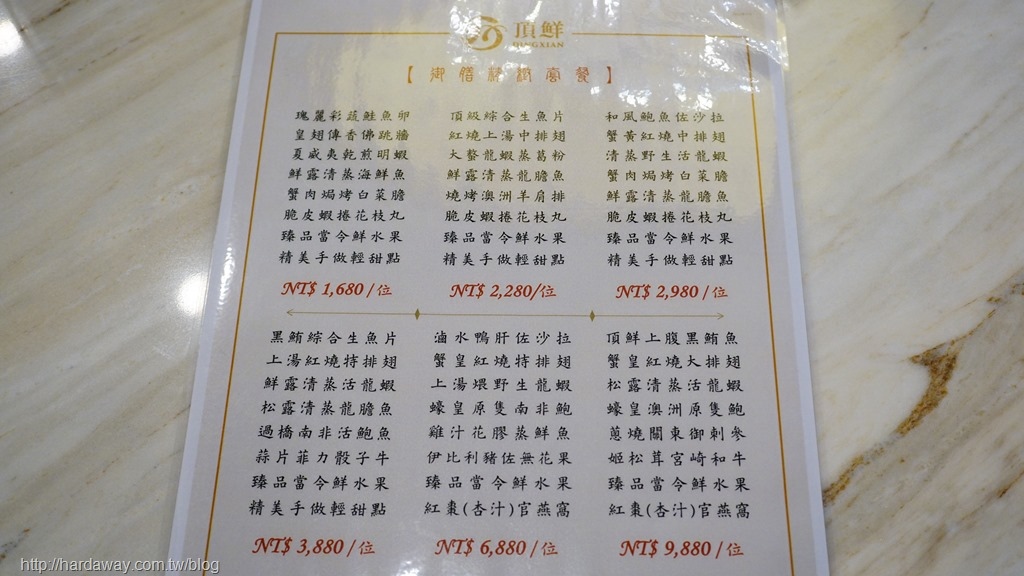 頂鮮
DINGXIAN
瑰麗彩蔬鮭魚卵
皇翅傳香佛跳牆
夏威夷乾煎明蝦
鮮露清蒸海鮮魚
蟹肉焗烤白菜膽
脆皮蝦捲花枝丸
臻品當令鮮水果
精美手做輕甜點
NT$ 1,680/位
頂級綜合生魚片
紅燒上湯中排翅
大螯龍蝦蒸葛粉
鮮露清蒸龍膽魚
燒烤澳洲羊肩排
脆皮蝦捲花枝丸
臻品當令鮮水果
精美手做輕甜點
NT$ 2,280/位
和風鮑魚佐沙拉
蟹黃紅燒中排翅
清蒸野生活龍蝦
蟹肉焗烤白菜膽
鮮露清蒸龍膽魚
脆皮蝦捲花枝丸
臻品當令鮮水果
精美手做輕甜點
NT$ 2,980/位
黑鮪綜合生魚片
上湯紅燒特排翅
鮮露清蒸活龍蝦
松露清蒸龍膽魚
過橋南非活鮑魚
蒜片菲力骰子牛
臻品當令鮮水果
精美手做輕甜點
NT$ 3,880/位
滷水鴨肝佐沙拉
蟹皇紅燒特排翅
上湯煨野生龍蝦
蠔皇原隻南非鮑
雞汁花膠蒸鮮魚
伊比利豬佐無花果
臻品當令鮮水果
紅棗(杏汁)官燕窩
NT$ 6,880/位
頂鮮上腹黑鮪魚
蟹皇紅燒大排翅
松露清蒸活龍蝦
蠔皇澳洲原隻鮑
蔥燒關東御刺參
姬松茸宮崎和牛
臻品當令鮮水果
紅棗(杏汁)官燕窩
NT$ 9,880/位
http://hardaway.com.tw/blog